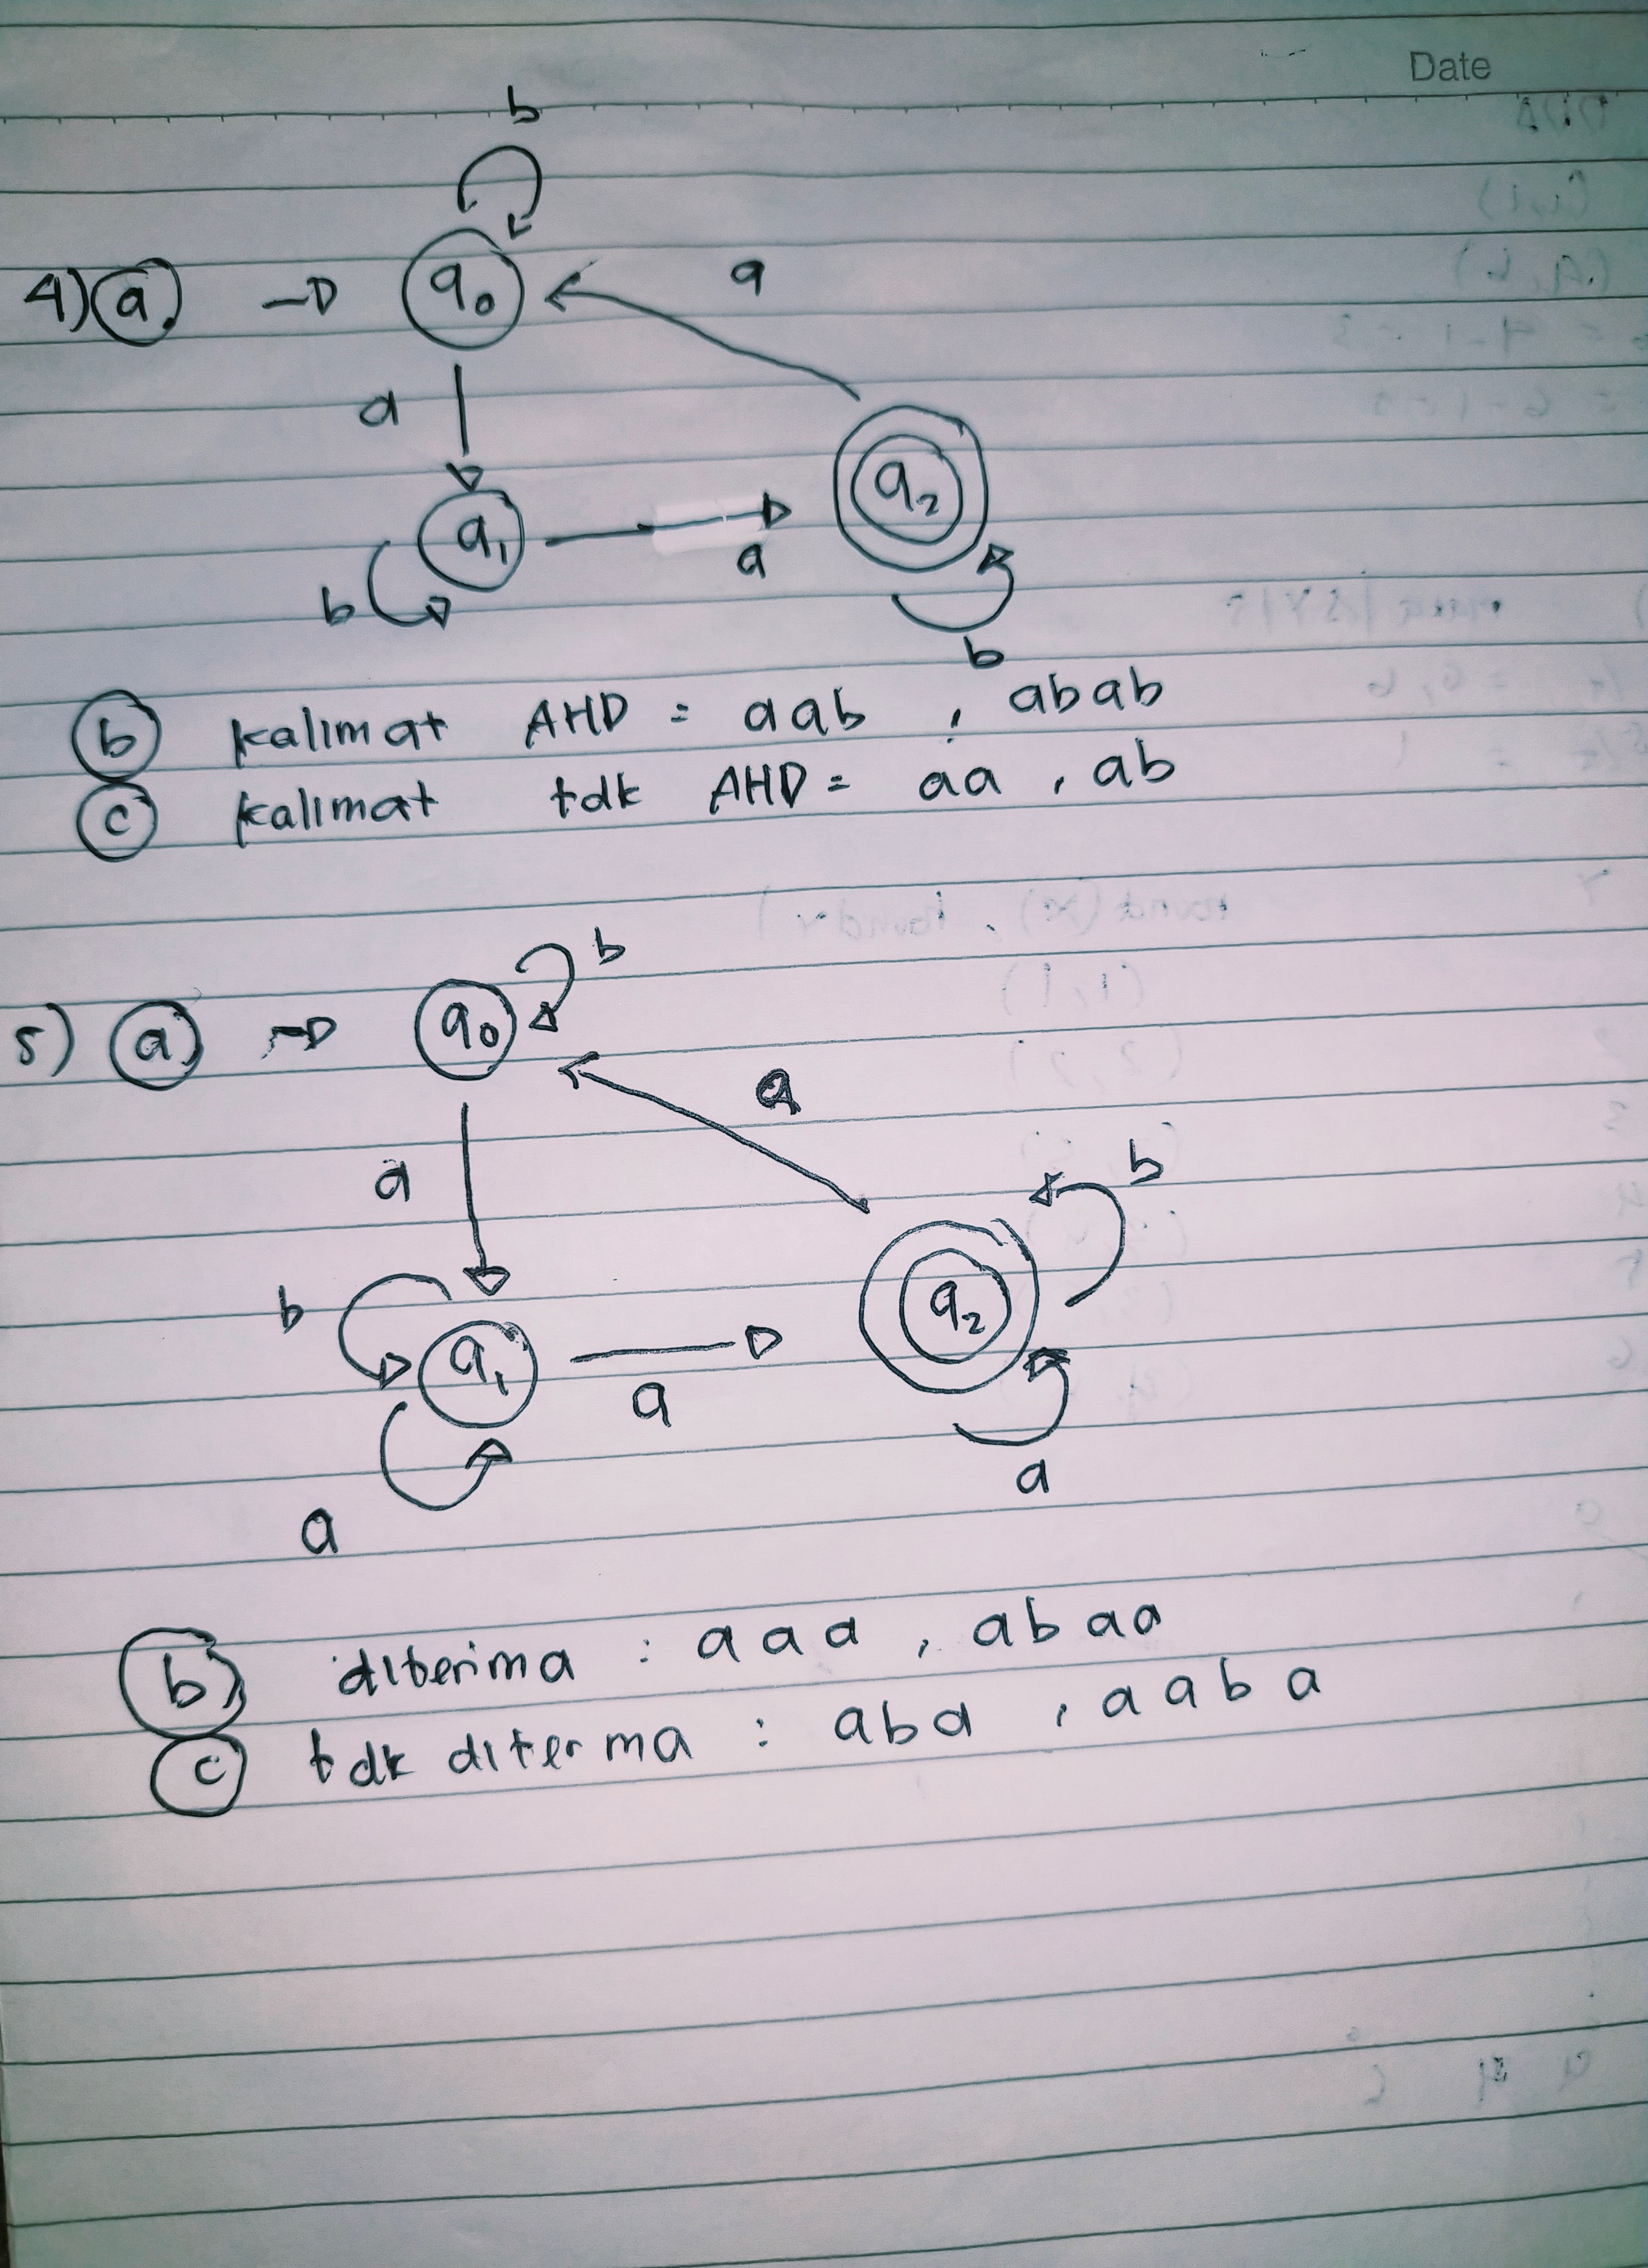 Date
b
4) a. q0 a
a
q1 a q2
b
b
b kalimat AHD = aab , abab
c kalimat tdk AHD = aa , ab
b
5) a) q0
a
a b
b q1 a q2
a
a
b) diterima : aaa , abaa
c tdk diterma : aba , aaba